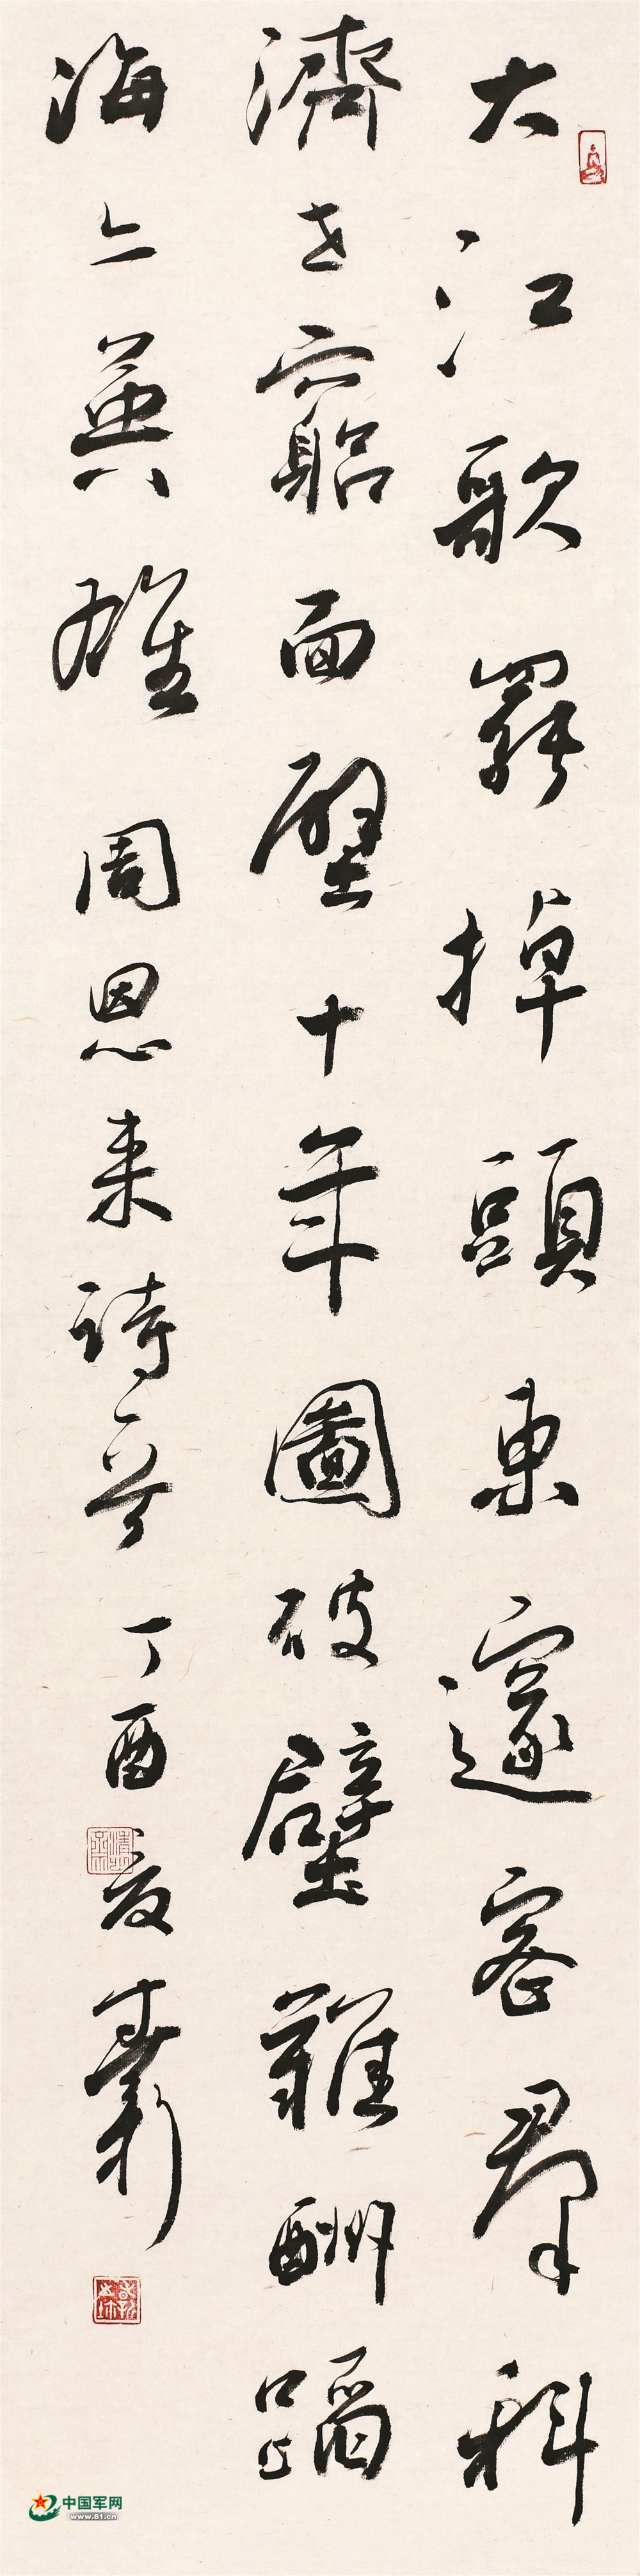 大江歌罷掉頭東邃密羣科
濟世竆面壁十年圖破壁難酬蹈
海亦英雄 周恩来詩一首 丁酉夏
中国军网
www.81.cn